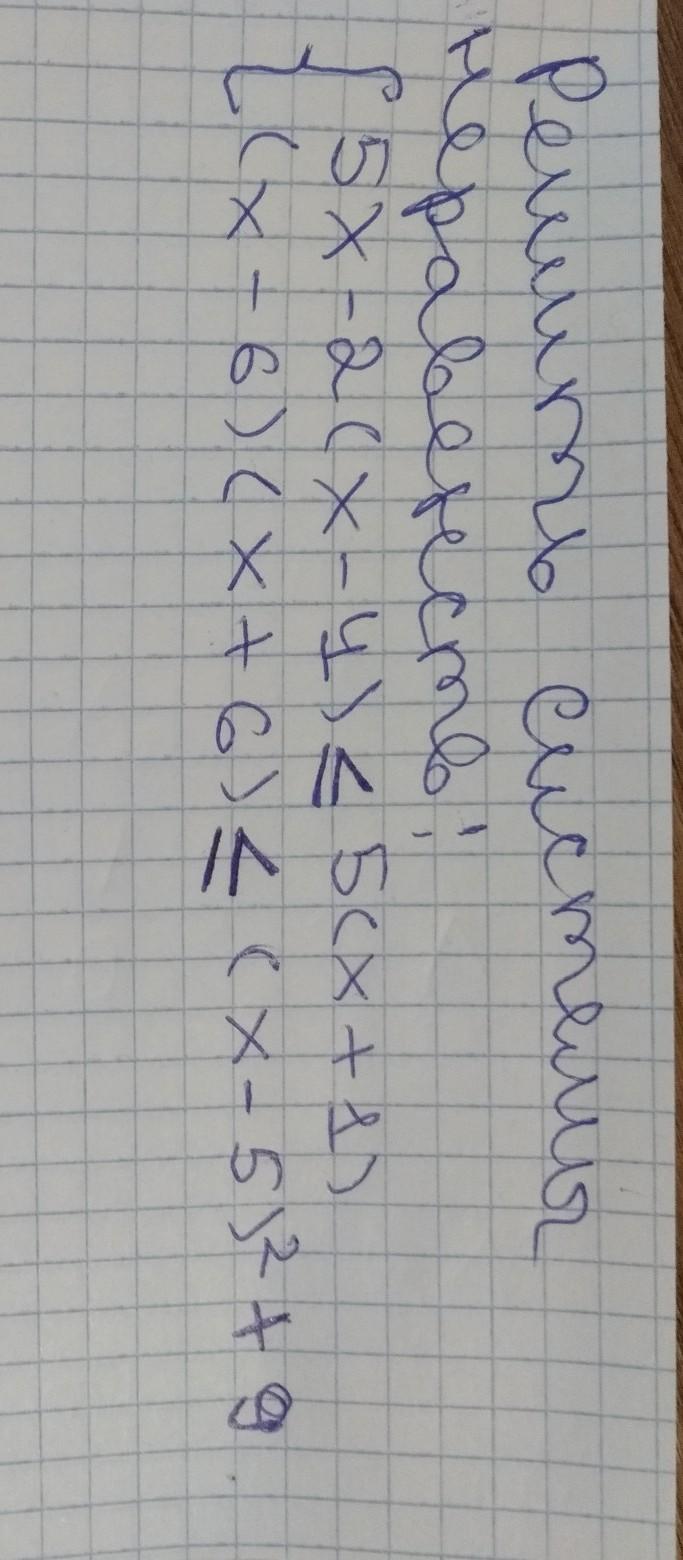 Решить системы
неравенств:
{ 5x-2(x-4) ≤ 5(x+1)
(x-6)(x+6) ≤ (x-5)²+9